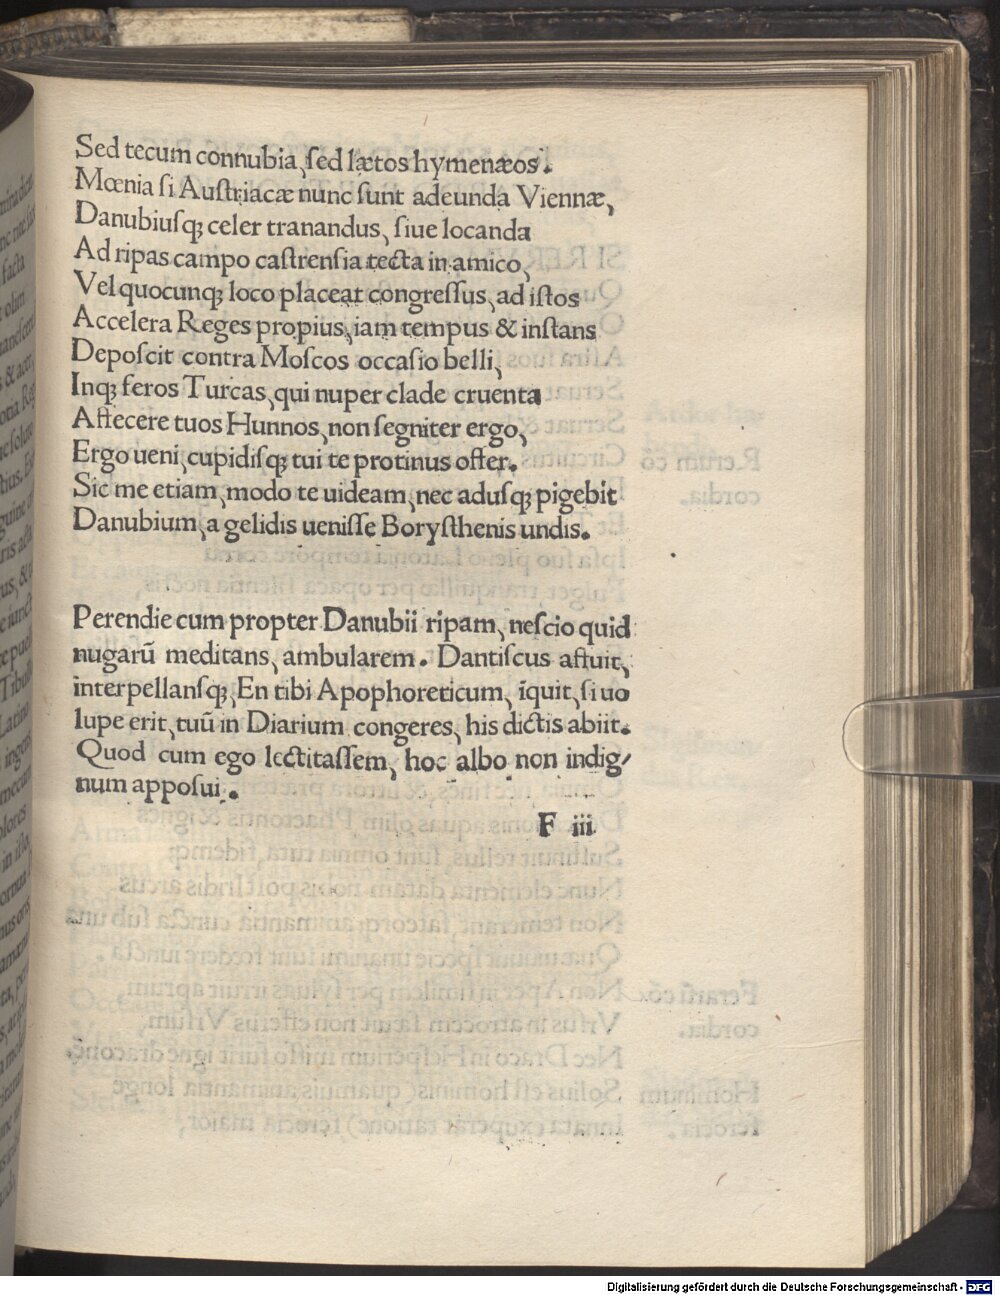 Sed tecum connubia, sed lætos hymenæos.
Mœnia si Austriacæ nunc sunt adeunda Viennæ,
Danubiusqꝫ celer tranandus, siue locanda
Ad ripas campo castrensia tecta in amico,
Vel quocunqꝫ loco placeat congressus, ad istos
Accelera Reges propius, iam tempus & instans
Deposcit contra Moscos occasio belli,
Inqꝫ feros Turcas, qui nuper clade cruenta
Affecere tuos Hunnos, non segniter ergo,
Ergo ueni, cupidisqꝫ tui te protinus offer.
Sic me etiam, modo te uideam, nec adusqꝫ pigebit
Danubium, a gelidis uenisse Borysthenis undis.
Perendie cum propter Danubii ripam, nescio quid
nugarū meditans, ambularem. Dantiscus affuit,
interpellansqꝫ, En tibi Apophoreticum, īquit, si uo
lupe erit, tuū in Diarium congeres, his dictis abiit.
Quod cum ego lectitassem, hoc albo non indig/
num apposui.
F iii
Digitalisierung gefördert durch die Deutsche Forschungsgemeinschaft - DFG